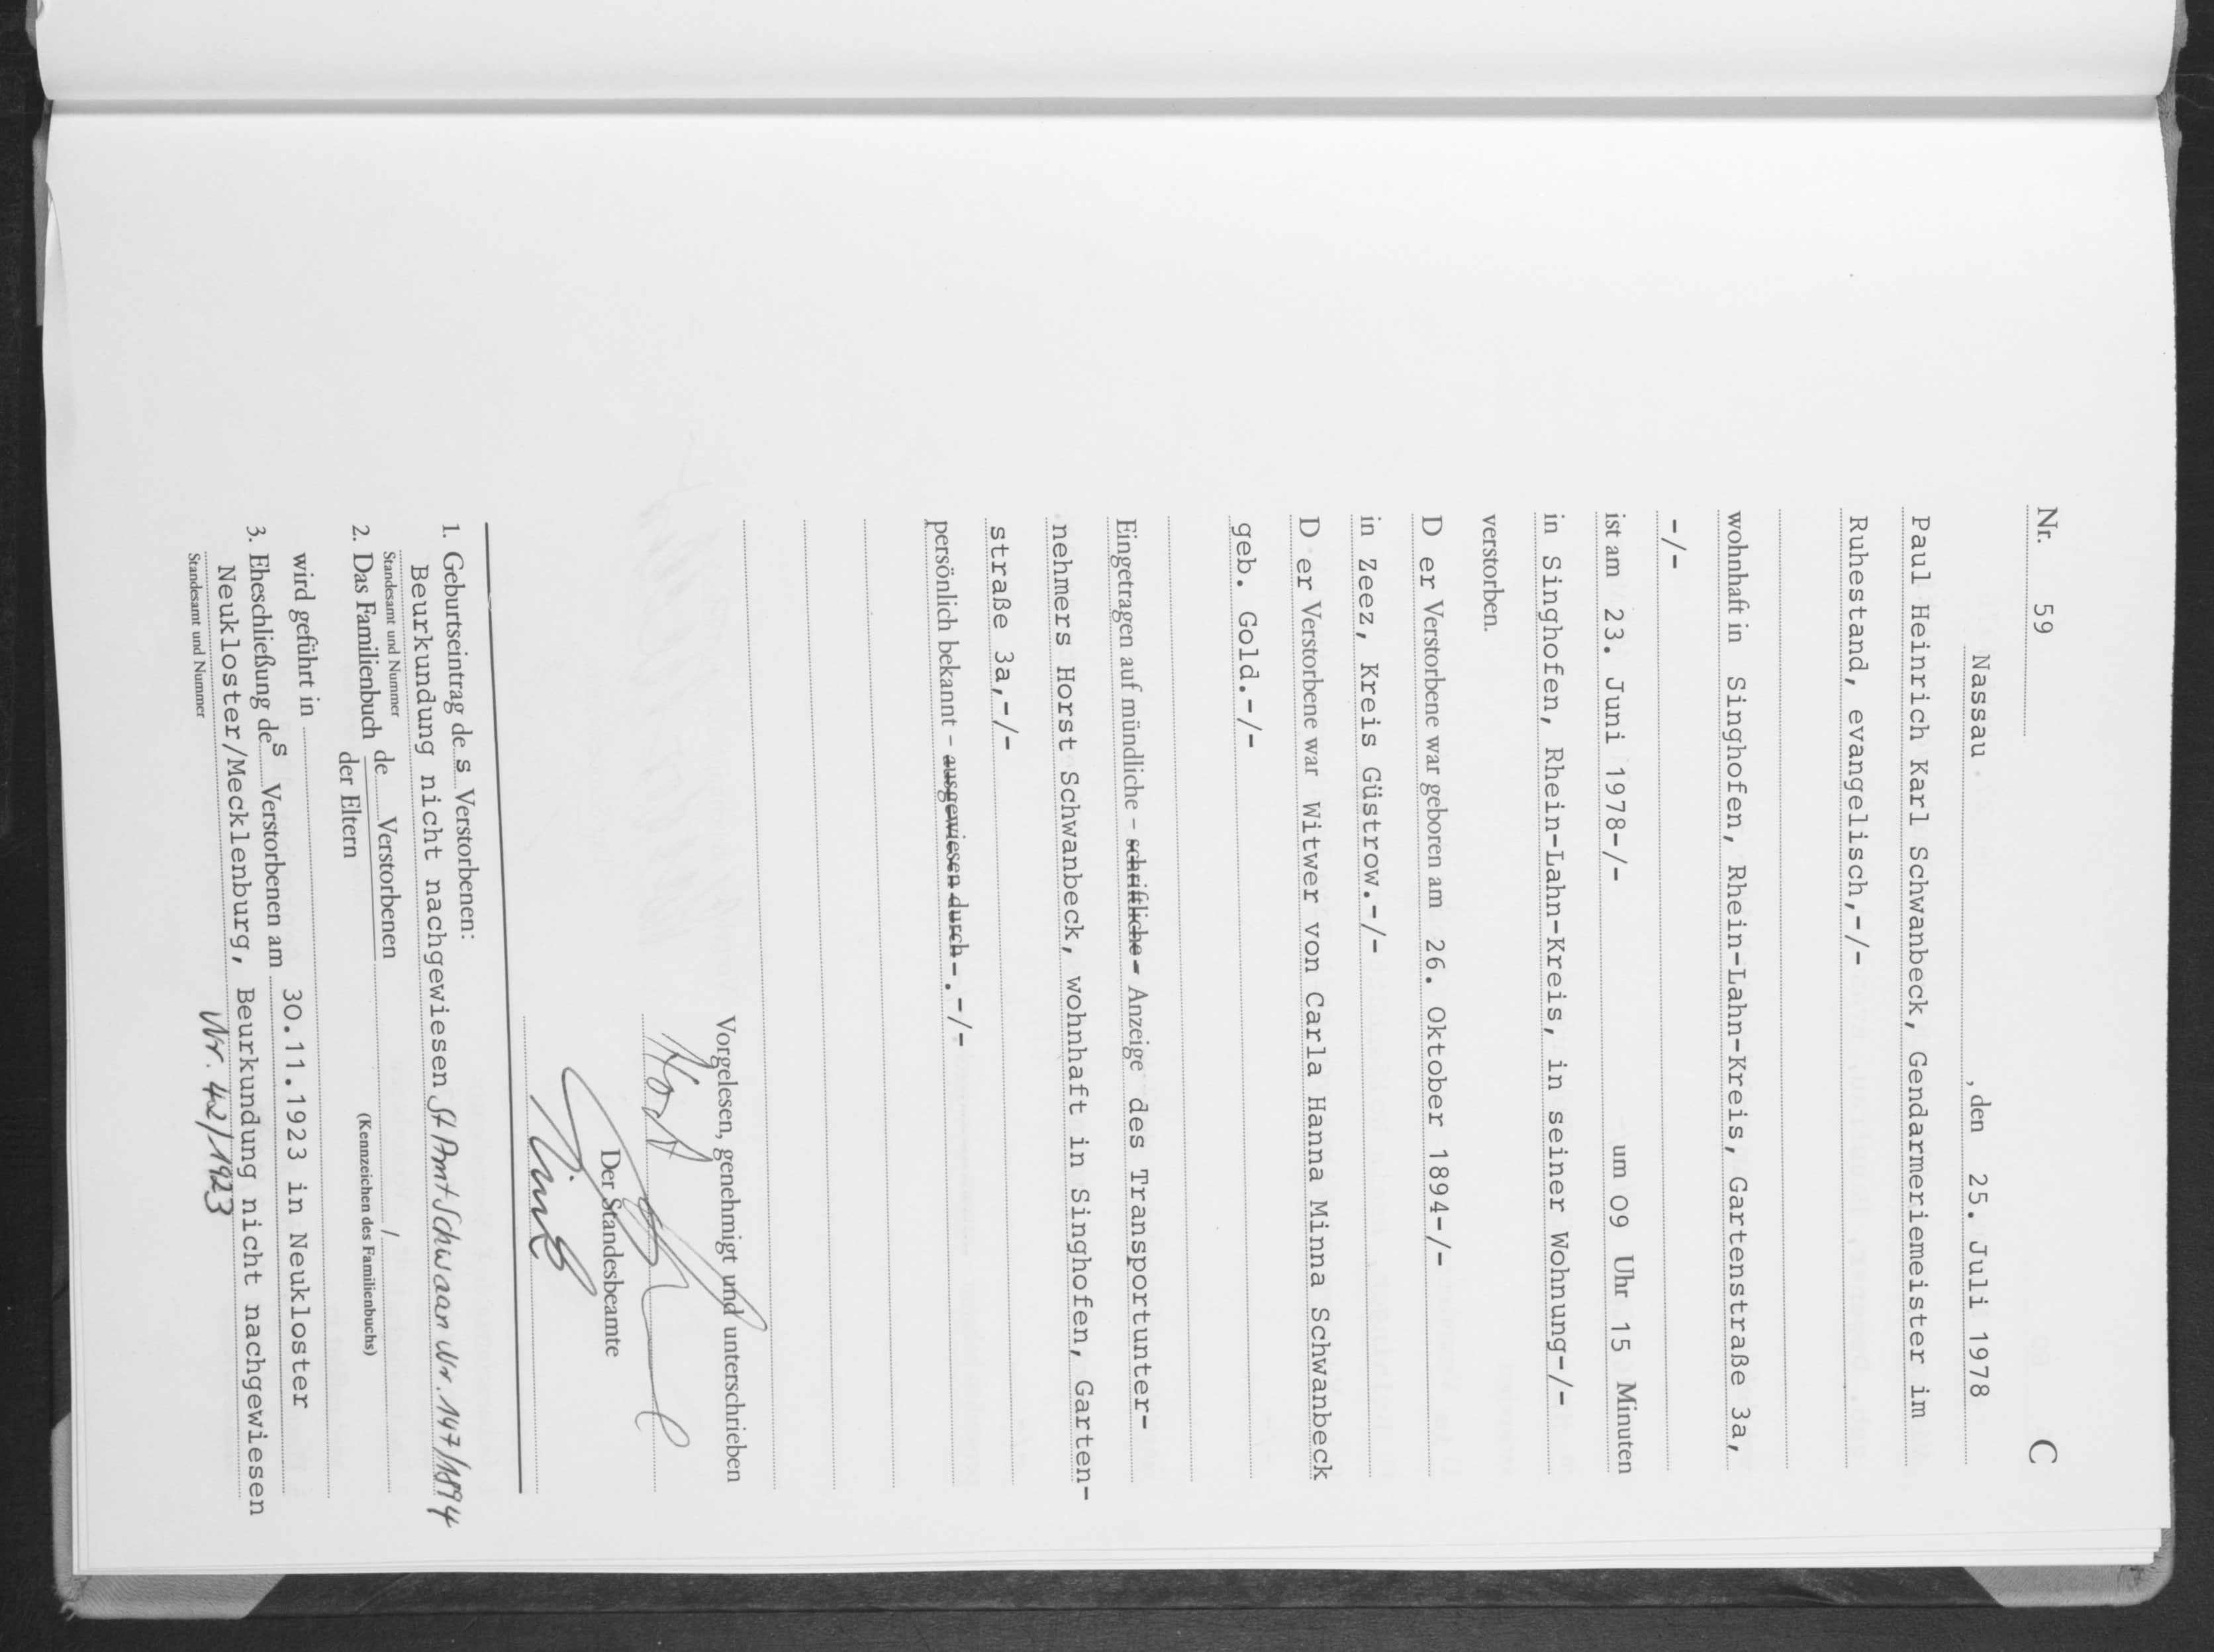 Nr. 59 C
Nassau , den 25. Juli 1978
Paul Heinrich Karl Schwanbeck, Gendarmeriemeister im
Ruhestand, evangelisch,-/-
wohnhaft in Singhofen, Rhein-Lahn-Kreis, Gartenstraße 3a,
-/-
ist am 23. Juni 1978-/- um 09 Uhr 15 Minuten
in Singhofen, Rhein-Lahn-Kreis, in seiner Wohnung-/-
verstorben.
D er Verstorbene war geboren am 26. Oktober 1894-/-
in Zeez, Kreis Güstrow.-/-
D er Verstorbene war Witwer von Carla Hanna Minna Schwanbeck
geb. Gold.-/-
Eingetragen auf mündliche - schriftliche - Anzeige des Transportunter-
nehmers Horst Schwanbeck, wohnhaft in Singhofen, Garten-
straße 3a,-/-
persönlich bekannt - ausgewiesen durch-.-/-
Vorgelesen, genehmigt und unterschrieben
Horst
Der Standesbeamte
1. Geburtseintrag de s Verstorbenen:
Beurkundung nicht nachgewiesen St Amt Schwaan Nr. 147/1894
Standesamt und Nummer
2. Das Familienbuch de Verstorbenen /
der Eltern (Kennzeichen des Familienbuchs)
wird geführt in
3. Eheschließung des Verstorbenen am 30.11.1923 in Neukloster
Neukloster/Mecklenburg, Beurkundung nicht nachgewiesen
Standesamt und Nummer Nr. 42/1923